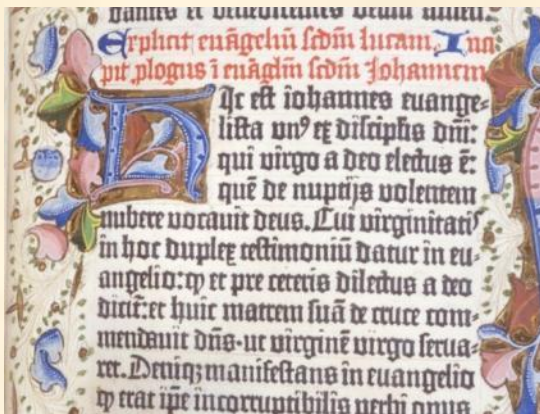 dantes et benedicentes deum amen.
Explicit euãgeliũ scd̃m lucam. Inci
pit ꝓlogus ĩ euãgliũ scd̃m Johannem
Hic est iohannes euange-
lista vnꝰ ex discipl̃is dñi:
qui virgo a deo electus ẽ:
quẽ de nuptijs volentem
nubere vocauit deus. Cui virginitatꝭ
in hoc duplex testimoniũ datur in eu-
angelio: ꝙ et pre ceteris dilectus a deo
dicit᷑: et huic matrem suã de cruce com-
mendauit dñs. ut virginẽ virgo serua-
ret. Deniqꝫ manifestans in euangelio
ꝙ erat ip̃e incorruptibilis verbi opus